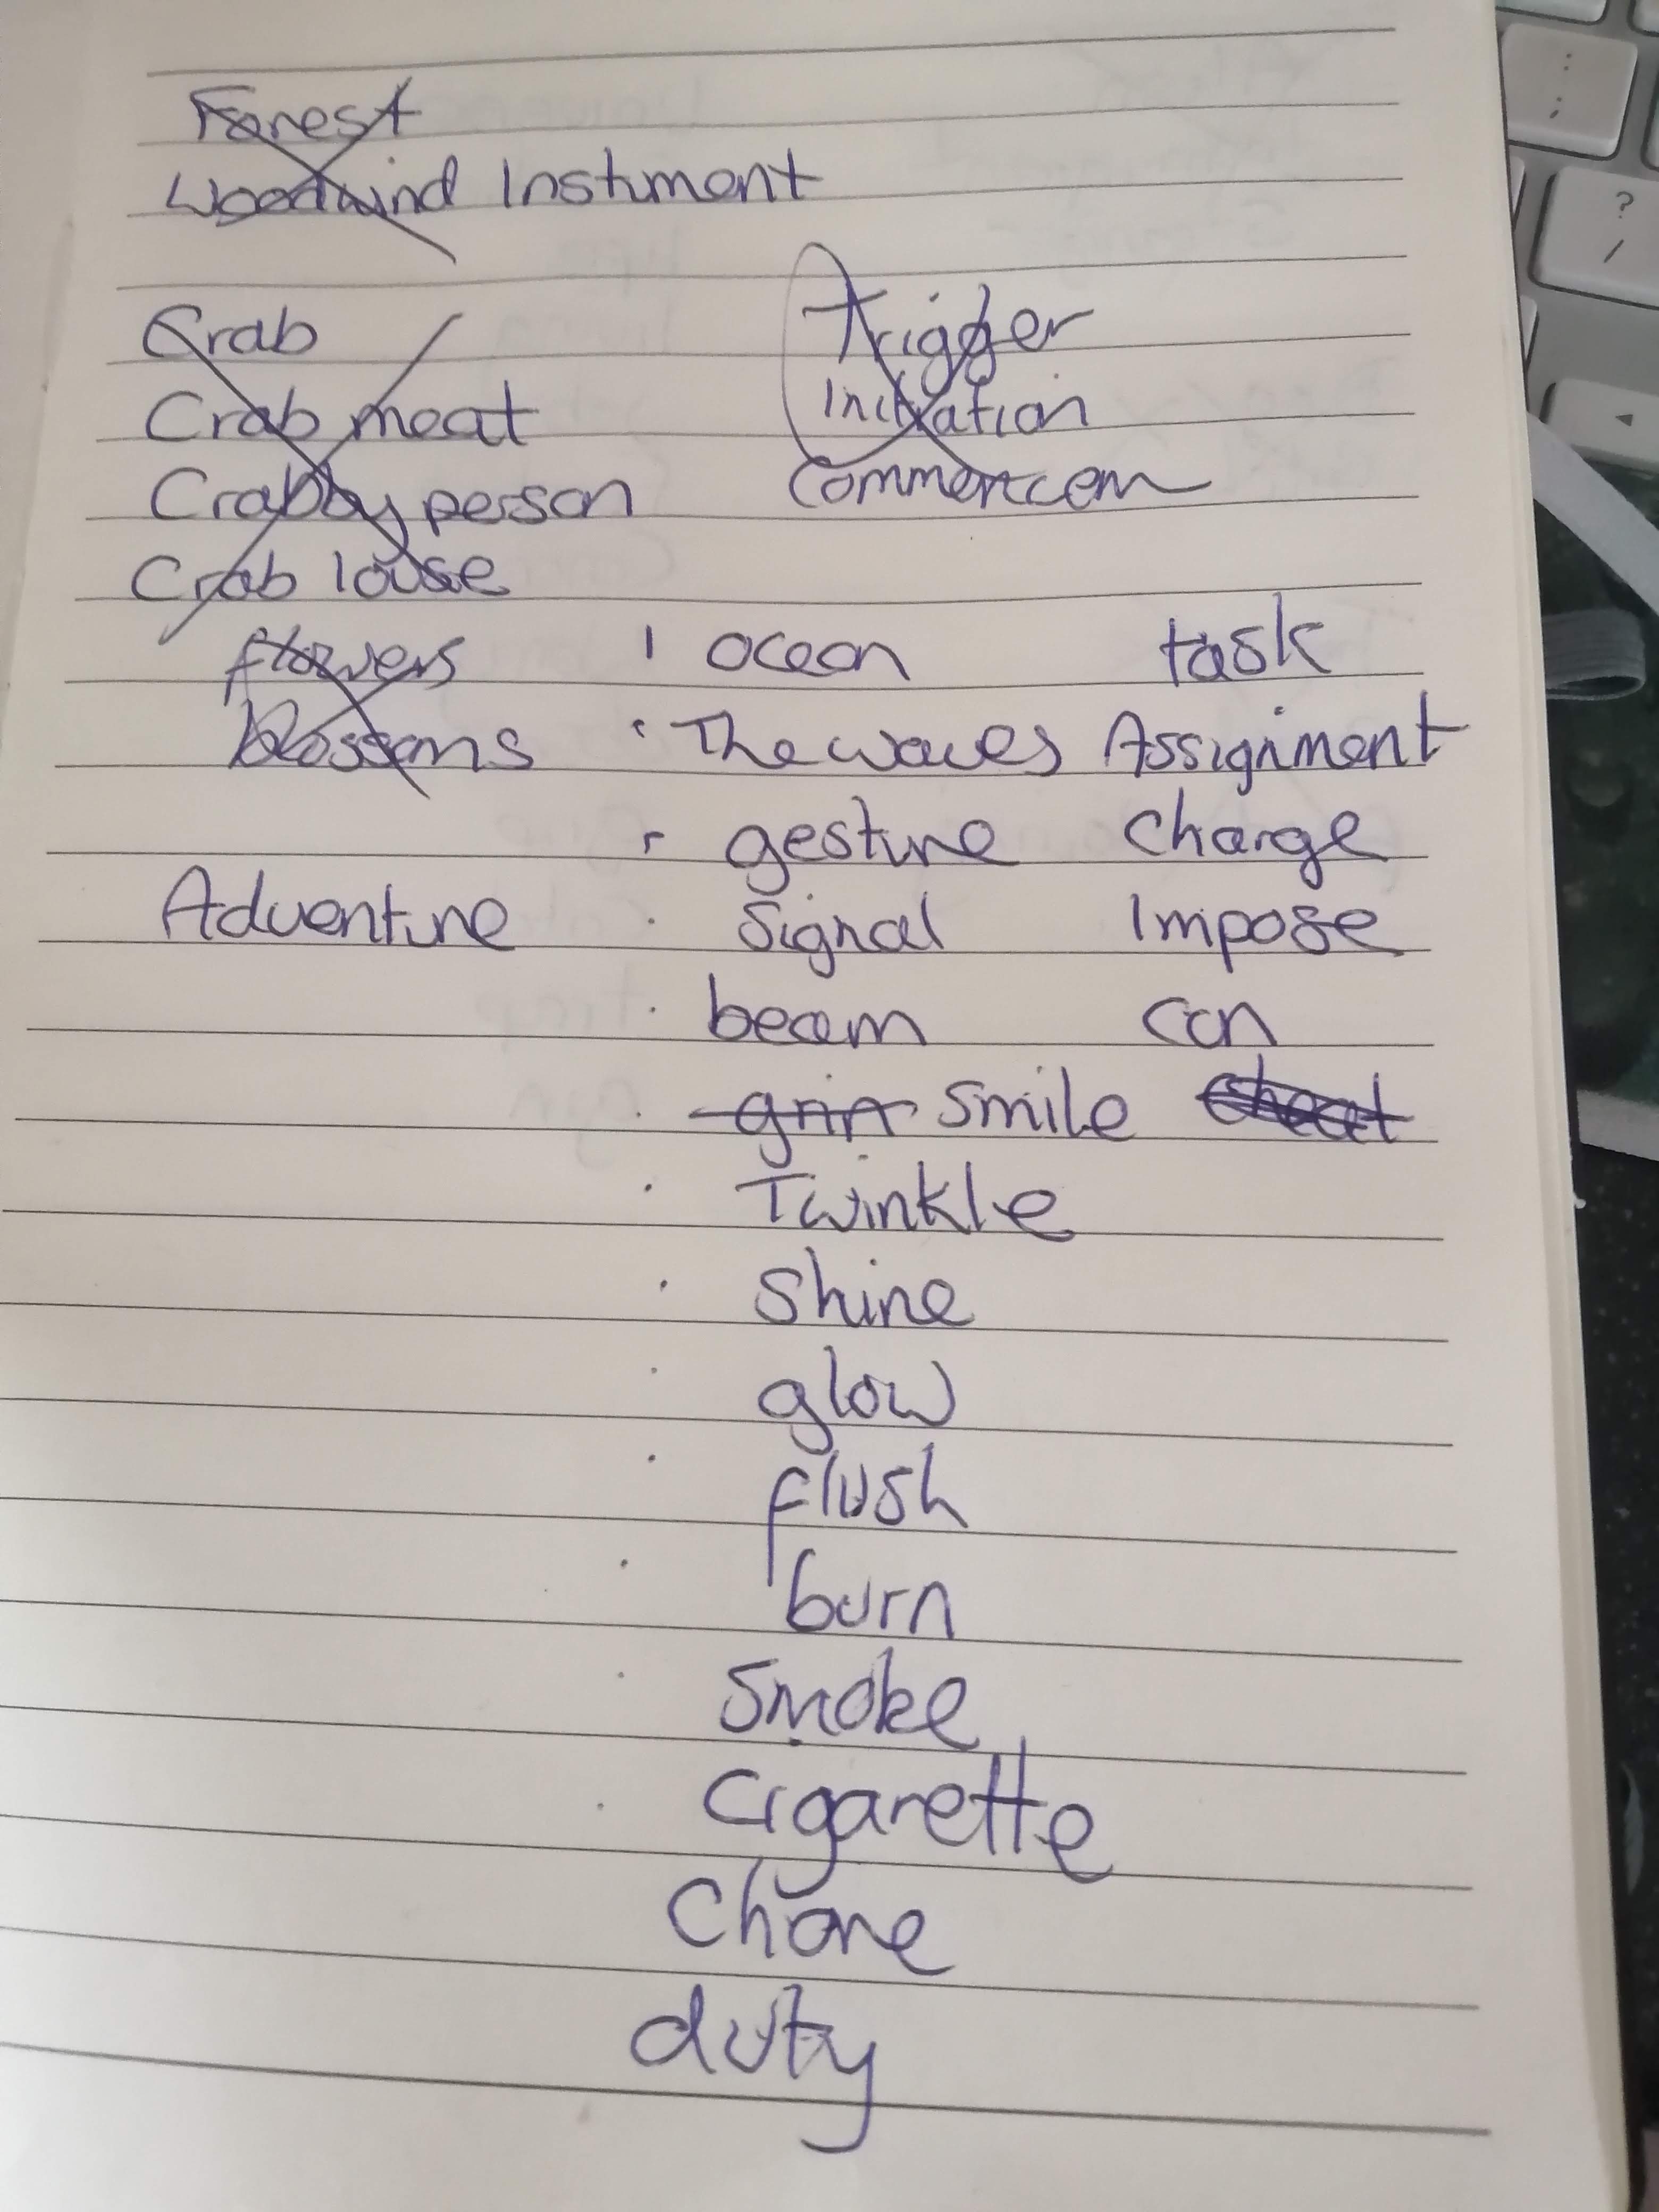 Forest
Woodwind Instument
Crab
Crab meat
Crabby person
Crab louse
Trigger
Initiation
Commencem
flowers
blossoms
Adventure
ocean
The waves
gesture
Signal
beam
grin smile
Twinkle
Shine
glow
flush
burn
Smoke
Cigarette
Chore
duty
task
Assignment
Charge
Impose
con
cheat
; :
? /